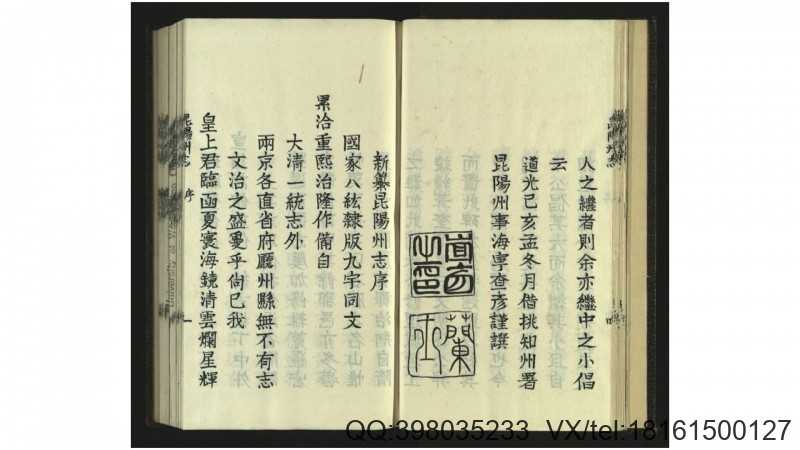 人之繼者則余亦繼中之小倡
云
道光己亥孟冬月借挑知州署
昆陽州事海寧查彥謹譔
新纂昆陽州志序
國家八紘隸版九字同文
累洽重熙治隆作備自
大清一統志外
兩京各直省府廳州縣無不有志
文治之盛戞乎尙已我
皇上君臨函夏寰海鏡清雲爛星輝
昆陽州志
序
一
QQ:398035233 VX/tel:18161500127